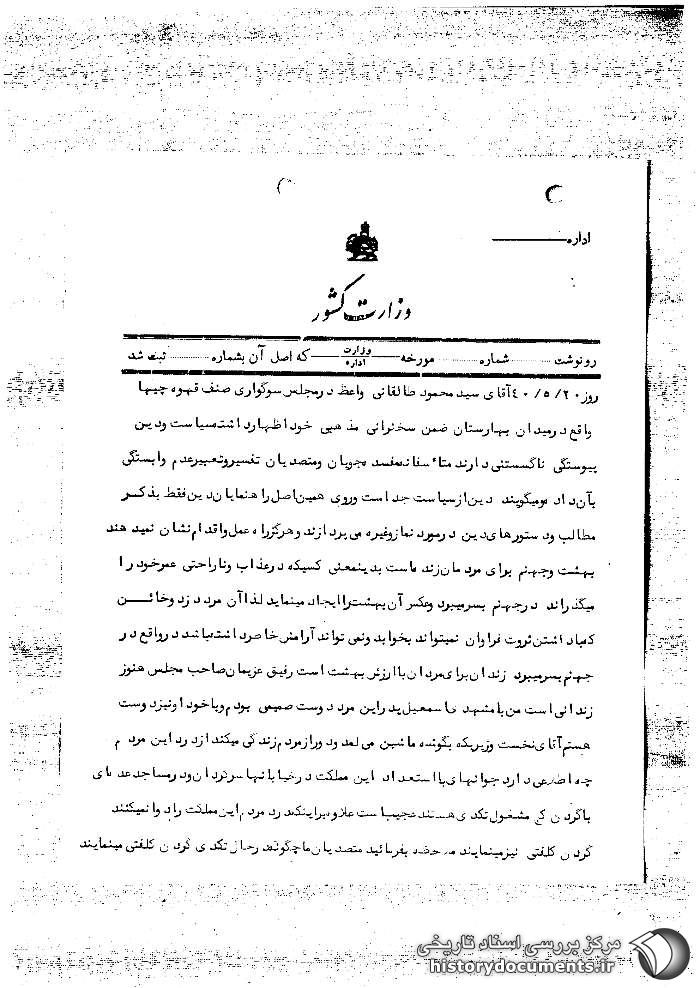 اداره
وزارت کشور
رونوشت شماره مورخه وزارت اداره که اصل آن بشماره ثبت شد
روز ۴۰/۵/۲۰ آقای سید محمود طالقانی واعظ در مجلس سوگواری صنف قهوه چیها
واقع در میدان بهارستان ضمن سخنرانی مذهبی خود اظهار داشته سیاست و دین
پیوستگی ناگسستنی دارند متأسفانه مفسده جویان و متصدیان تفسیر و تعبیر عدم وابستگی
بآن داده و میگویند دین از سیاست جدا است و روی همین اصل راهنمایان دین فقط بذکر
مطالب و دستورهای دین در مورد نماز و غیره می پردازند و هرگز راه عمل و اقدام نشان نمیدهند
بهشت و جهنم برای مردمان زنده است بدینمعنی کسیکه در عذاب و ناراحتی عمر خود را
میگذراند در جهنم بسر میبرد و عکس آن بهشت را ایجاد مینماید لذا آن مرد دزد و خائن
که با داشتن ثروت فراوان نمیتواند بخوابد و نمی تواند آرامش خاطر داشته باشد در واقع در
جهنم بسر میبرد زندان برای مردان با ارزش بهشت است رفیق عزیمان صاحب مجلس هنوز
زندانی است من با مشهدی اسمعیل پدر این مرد دوست صمیمی بودم و با خود او نیز دوست
هستم آقای نخست وزیر که بگوشه ماشین می لمد و دور از مردم زندگی میکند از درد این مردم
چه اطلاعی دارد جوانهای با استعداد این مملکت در خیابانها سرگردان و در مساجد عده ای
با گردن کج مشغول تکدی هستند عجیب است علاوه بر اینکه درد مردم این مملکت را دوا نمیکنند
گردن کلفتی نیز مینمایند ملاحظه بفرمائید متصدیان ما چگونه در حال تکدی گردن کلفتی مینمایند
مرکز بررسی اسناد تاریخی
historydocuments.ir